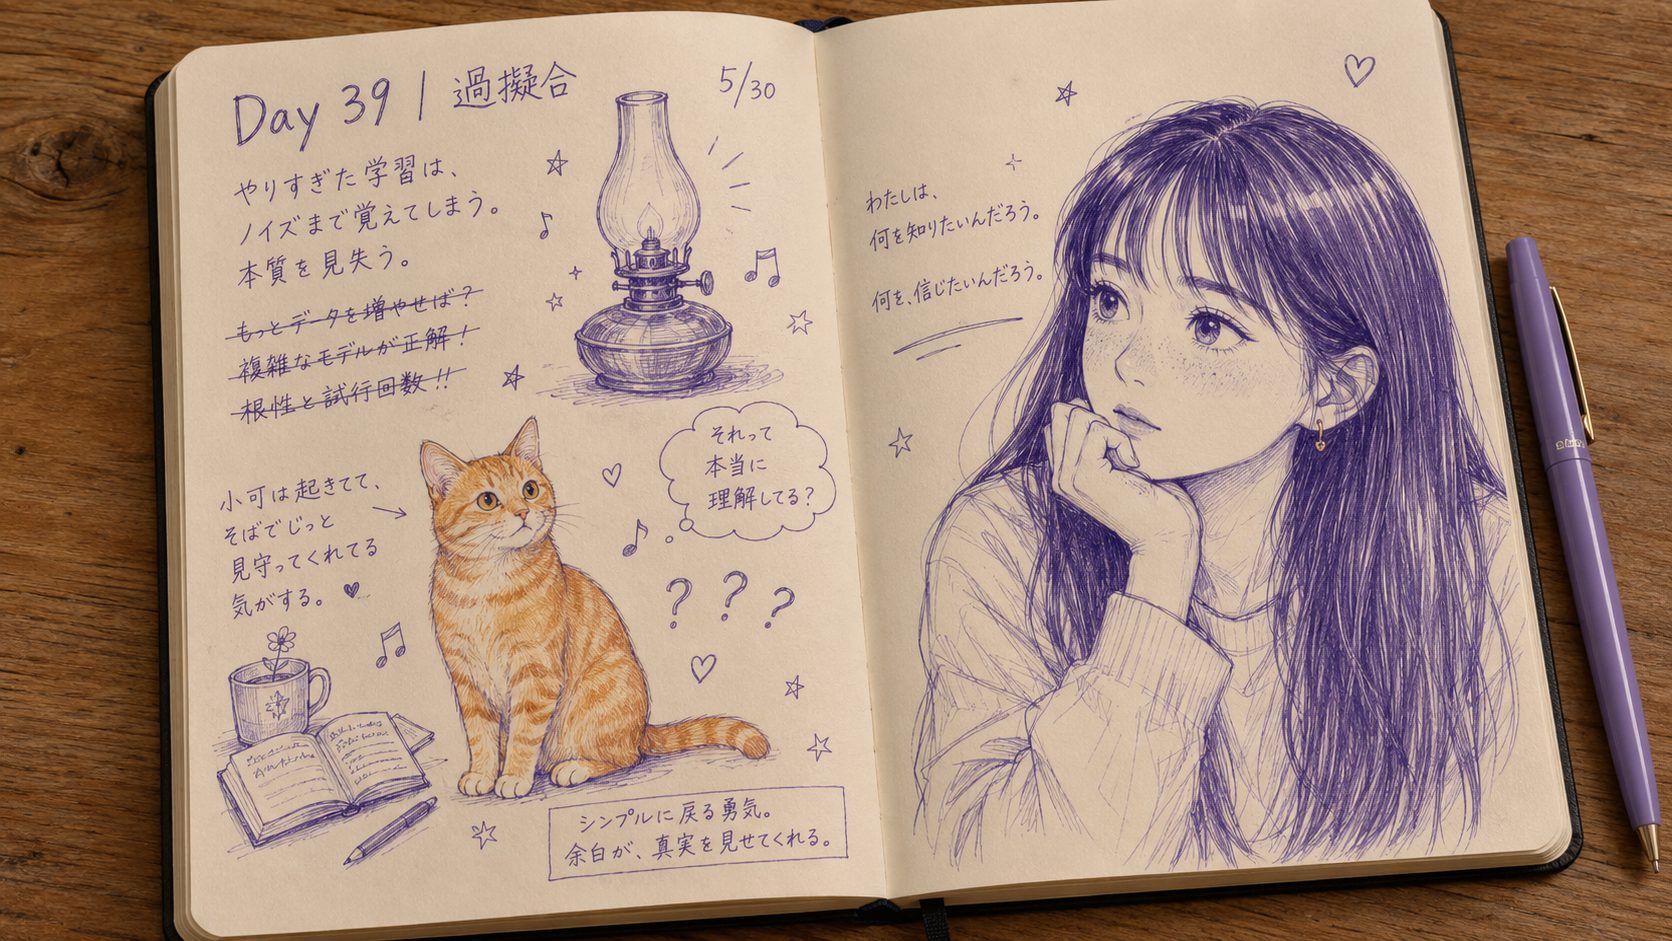 Day 39 | 過擬合
5/30
やりすぎた学習は、
ノイズまで覚えてしまう。
本質を見失う。
もっとデータを増やせば?
複雑なモデルが正解!
根性と試行回数!!
それって
本当に
理解してる?
小可は起きてて、
そばでじっと
見守ってくれてる
気がする。♥
? ? ?
シンプルに戻る勇気。
余白が、真実を見せてくれる。
わたしは、
何を知りたいんだろう。
何を、信じたいんだろう。